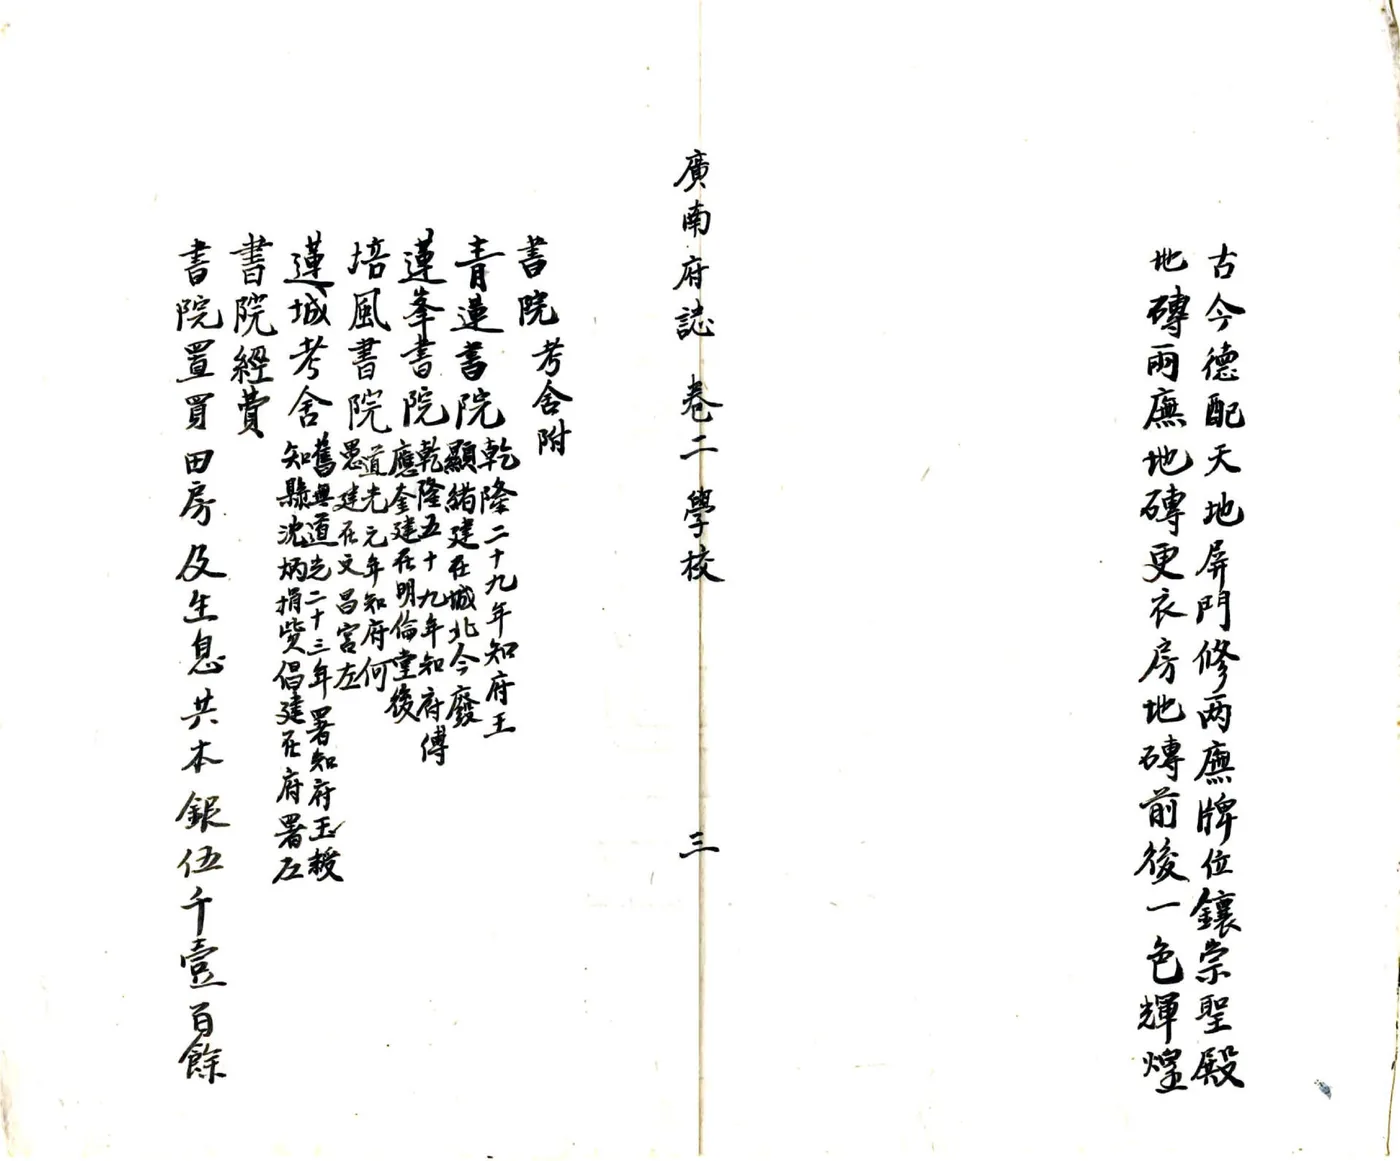 古今德配天地屏門修两廡牌位鑲崇聖殿
地磚兩廡地磚更衣房地磚前後一色輝煌
廣南府誌 卷二 學校 三
書院 考舍附
青蓮書院 乾隆二十九年知府王
顯緒建在城北今廢
蓮峯書院 乾隆五十九年知府傅
應奎建在明倫堂後
培風書院 道光元年知府何
愚建在文昌宮左
蓮城考舍 舊無道光二十三年署知府玉
知縣沈炳捐貲倡建在府署左
書院經費
書院置買田房及生息共本銀伍千壹百餘